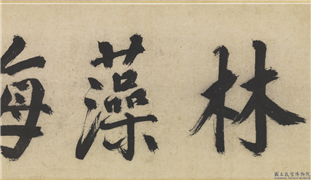 林藻海
國立故宮博物院